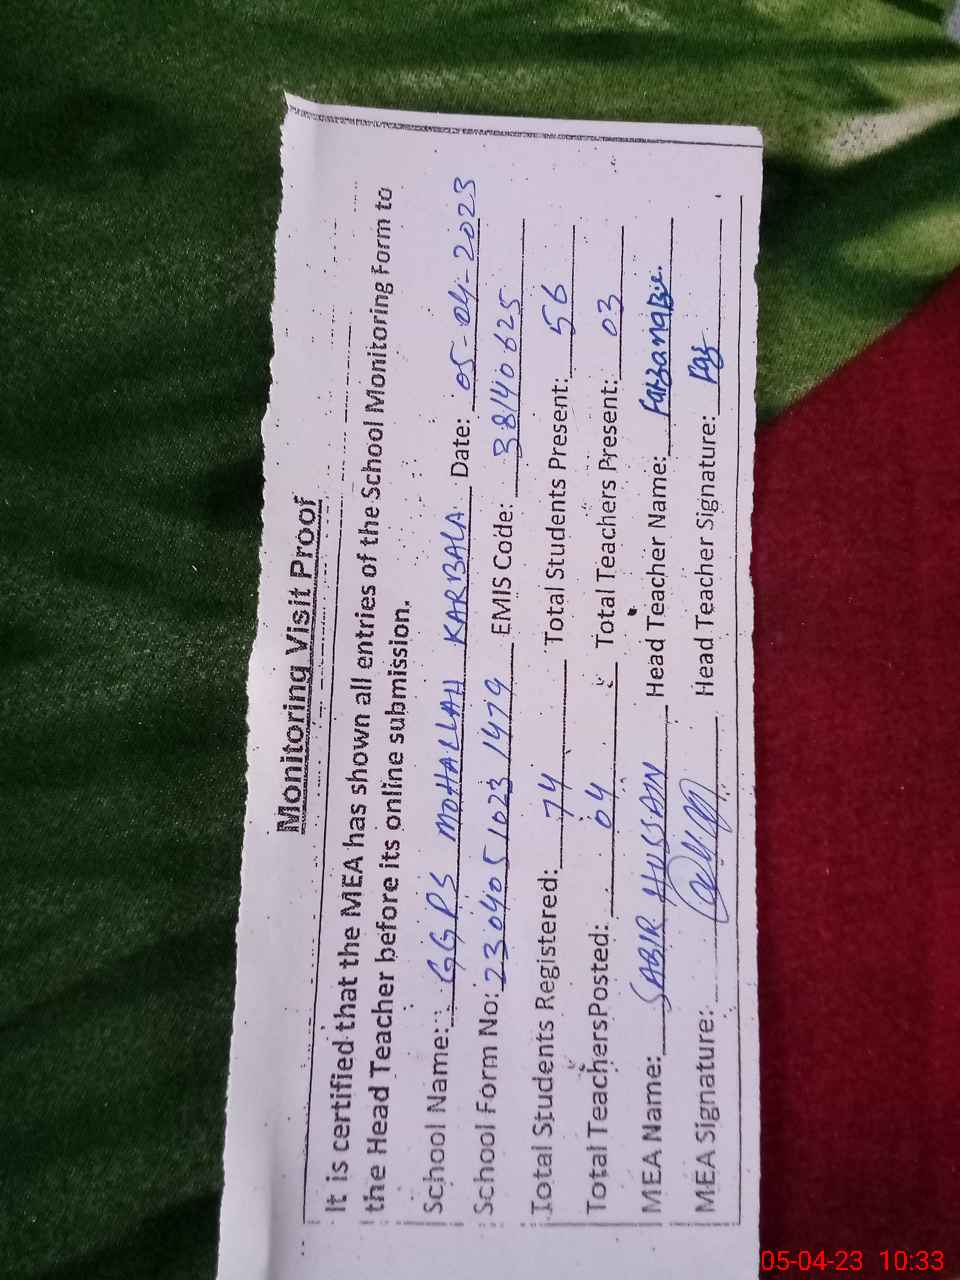 Monitoring Visit Proof
It is certified that the MEA has shown all entries of the School Monitoring Form to
the Head Teacher before its online submission.
School Name: GGPS MOHALLAH KARBALA Date: 05-04-2023
School Form No: 230405 1023 1479 EMIS Code: 38140625
Total Students Registered: 74 Total Students Present: 56
Total Teachers Posted: 04 Total Teachers Present: 03
MEA Name: SABIR HUSSAIN Head Teacher Name: Farzana Bi.
MEA Signature: Head Teacher Signature:
05-04-23 10:33